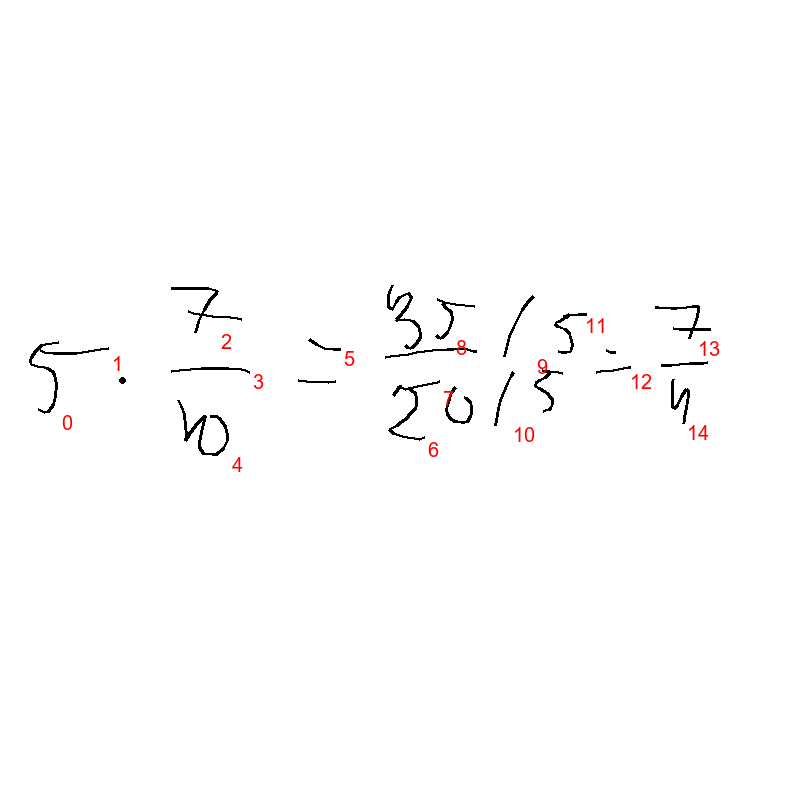 5 · 7/10 = 35/20 /5 /5 = 7/4
0 1 2 3 4 5 6 7 8 9 10 11 12 13 14